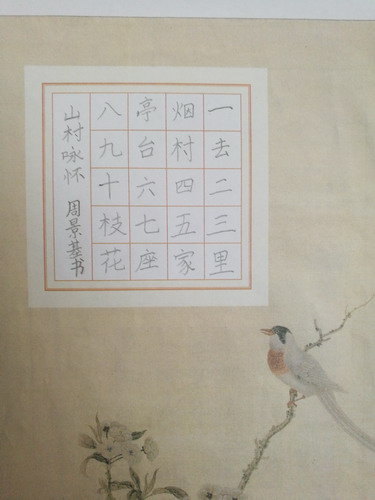 一去二三里
烟村四五家
亭台六七座
八九十枝花
山村咏怀 周景基书